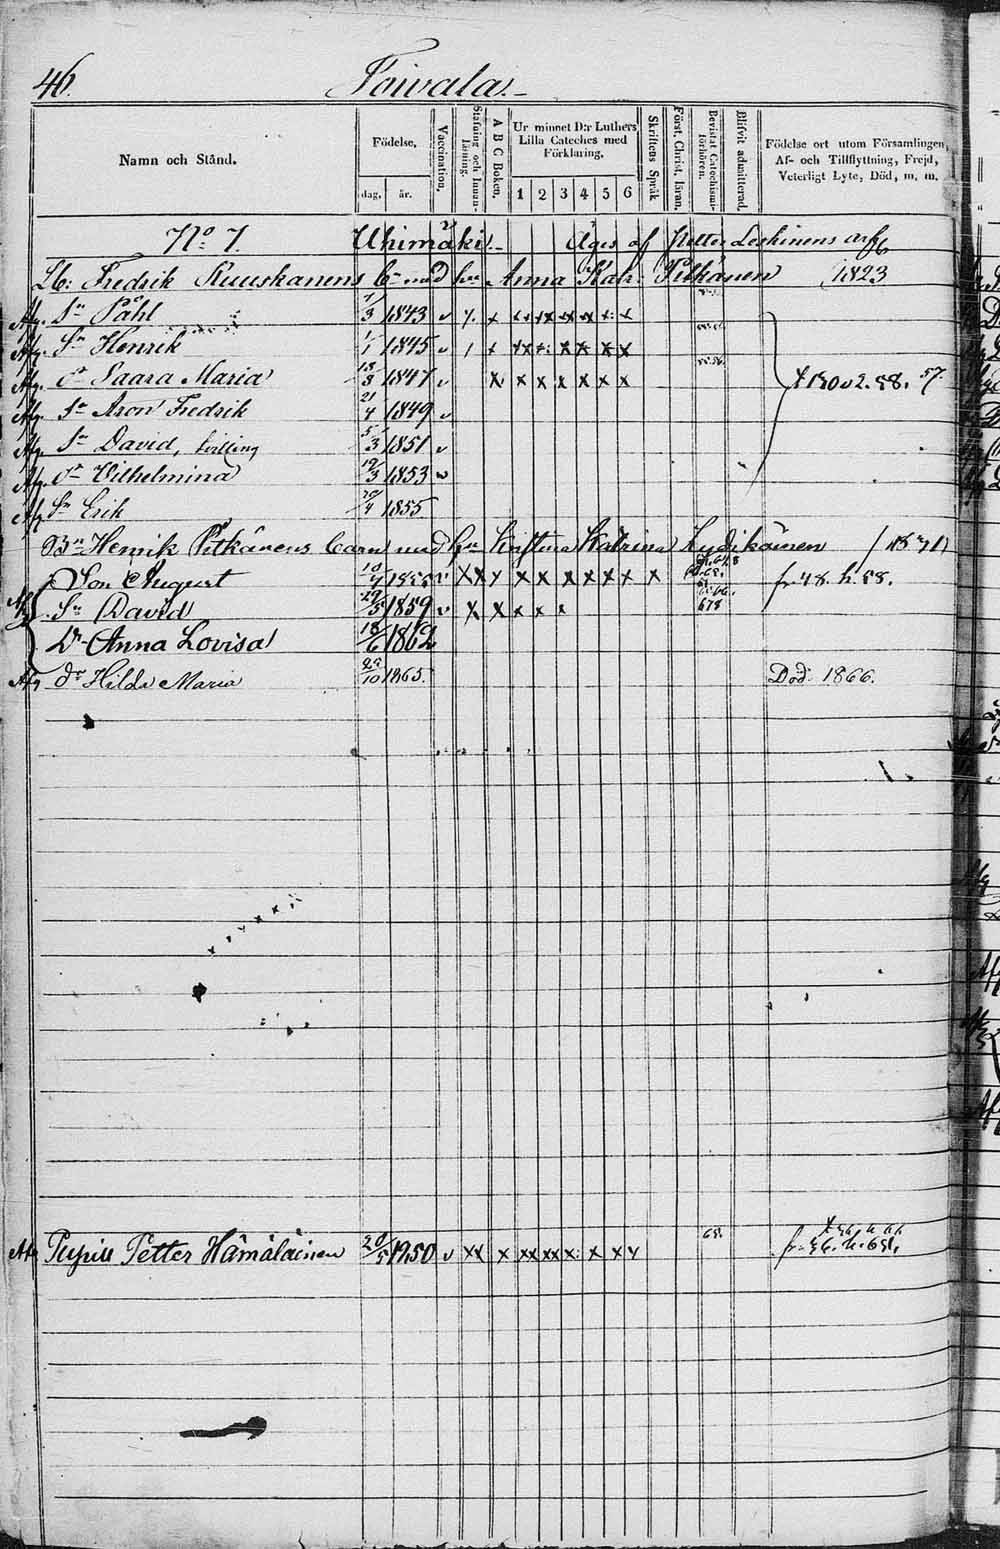 46. Toivala
Namn och Stånd.
Födelse, dag, år.
Vaccination.
Stafning och Innan-läsning.
A B C Boken.
Ur minnet D:r Luthers Lilla Cateches med Förklaring.
1 2 3 4 5 6
Skriftens Språk
Först. Christ. Isran.
Bevistat Catechismi-förhören.
Blifvit admitterad.
Födelse ort utom Församlingen, Af- och Tillflyttning, Frejd, Veterligt Lyte, Död, m. m.
No 7. Uhimäki. Äges af Petter Leskinens arf
Fredrik Ruuskanens med Anna Pitkänen 1823
Afg. Sn Påhl 1/3 1843 v x x x x x x x
Afg. Sn Henrik 1/1 1845 v x x x x x x x
Afg. dr Saara Maria 13/3 1847 v x x x x x x x 57.
Afg. Sn Aron Fredrik 21/4 1849 v
Afg. Sn David, tvilling 5/3 1851 v
Afg. dr Vilhelmina 19/3 1853 v
Afg. Sn Erik 1855
Henrik Pitkänens barn med Katrina
Son August 10/7 v x x x x x x x x x x fr 48. h. 58.
Sn David 29/5 1859 v x x x x x
Dr Anna Lovisa 18/6 1862
Afg dr Hilda Maria 23/10 1865. Död. 1866.
Afg Petter Hämäläinen 20/5 1850 v x x x x x x x x x